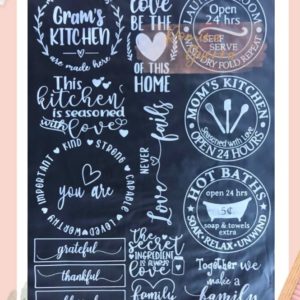 Gram's
KITCHEN
are made here
love
BE THE
OF THIS
HOME
LAUNDRY ROOM
Open
24 hrs
SELF
SERVE
WASH DRY FOLD REPEAT
This
kitchen
is seasoned
with love
MOM'S KITCHEN
Seasoned with Love
OPEN 24 HOURS
IMPORTANT • KIND • STRONG • CAPABLE • WORTHY • LOVED
you are
Love
NEVER
fails
HOT BATHS
open 24 hrs
5¢
soap & towels
extra
SOAK • RELAX • UNWIND
grateful
thankful
the
secret
INGREDIENT
IS ALWAYS
love
family
Together we
make a
family